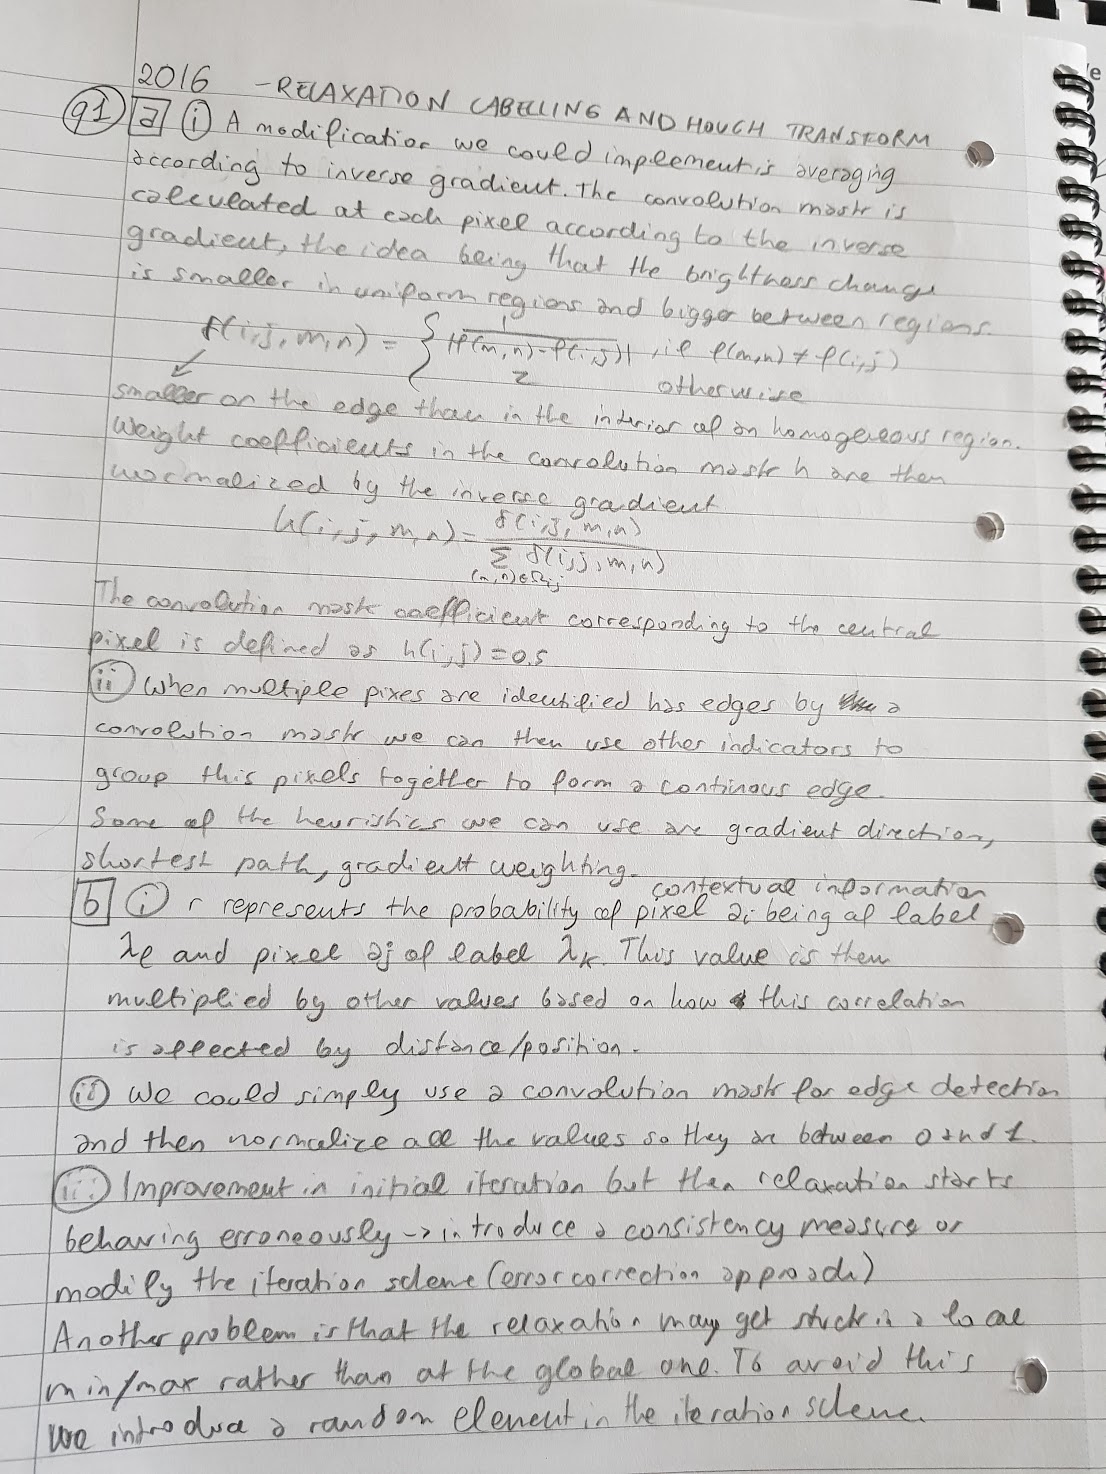 2016 - RELAXATION LABELLING AND HOUGH TRANSFORM
Q1 a i A modification we could implement is averaging
according to inverse gradient. The convolution mask is
calculated at each pixel according to the inverse
gradient, the idea being that the brightness change
is smaller in uniform regions and bigger between regions.
δ(i,j,m,n) = { 1 / |f(m,n)-f(i,j)| , if f(m,n) ≠ f(i,j)
2 otherwise
smaller on the edge than in the interior of an homogeneous region.
Weight coefficients in the convolution mask h are then
normalized by the inverse gradient
h(i,j,m,n) = δ(i,j,m,n) / Σ δ(i,j,m,n)
The convolution mask coefficient corresponding to the central
pixel is defined as h(i,j) = 0.5
ii When multiple pixes are identified has edges by a
convolution mask we can then use other indicators to
group this pixels together to form a continous edge.
Some of the heuristics we can use are gradient direction,
shortest path, gradient weighting.
contextual information
b i r represents the probability of pixel ai being of label
λl and pixel aj of label λk. This value is then
multiplied by other values based on how this correlation
is affected by distance/position.
ii We could simply use a convolution mask for edge detection
and then normalize all the values so they are between 0 and 1.
iii Improvement in initial iteration but then relaxation starts
behaving erroneously -> introduce a consistency measure or
modify the iteration scheme (error correction approach)
Another problem is that the relaxation may get stuck in a local
min/max rather than at the global one. To avoid this
we introduce a random element in the iteration scheme.